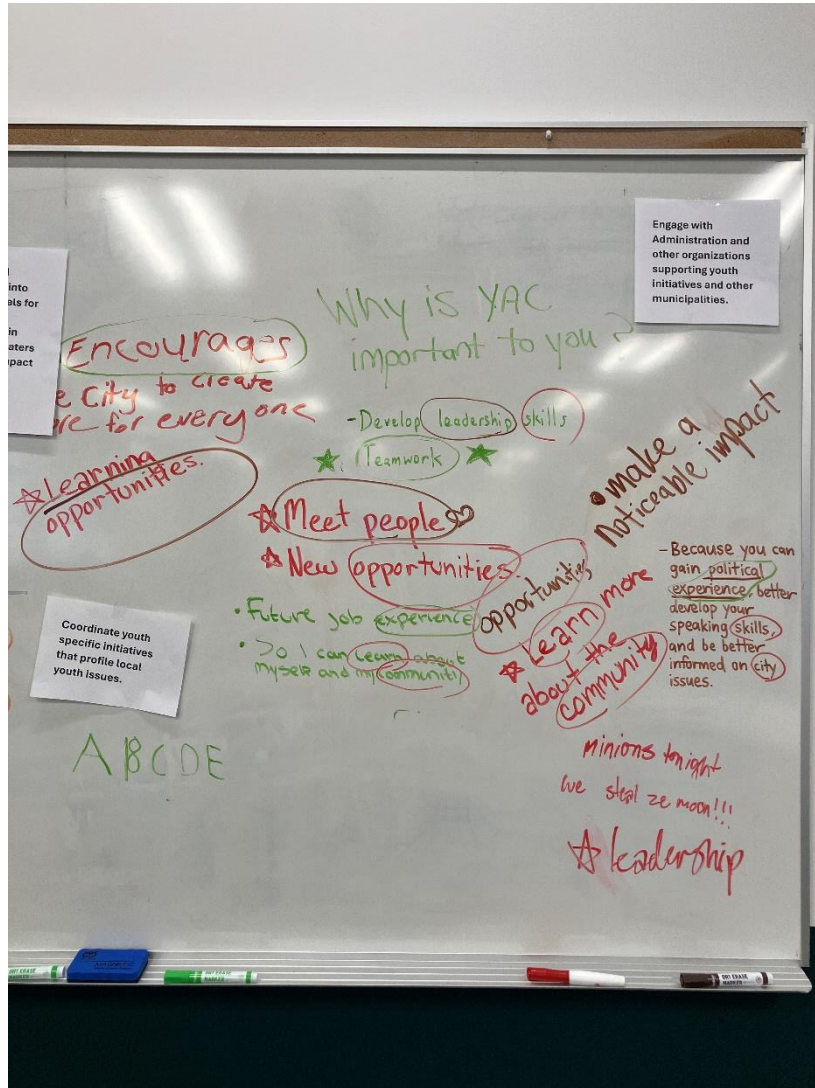 Engage with
Administration and
other organizations
supporting youth
initiatives and other
municipalities.
into
als for
in
aters
pact
Why is YAC
important to you?
Encourages
e City to create
re for every one
☆ Learning
opportunities.
- Develop leadership skills
★ Teamwork ★
☆ Meet people ♡
★ New opportunities.
• Future job experience
• So I can learn about
myself and my community
opportunities
• make a
noticeable impact
★ Learn more
about the
community
- Because you can
gain political
experience, better
develop your
speaking skills,
and be better
informed on city
issues.
Coordinate youth
specific initiatives
that profile local
youth issues.
A B C D E
minions tonight
we steal ze moon!!!
☆ leadership
DRY ERASE
MARKER